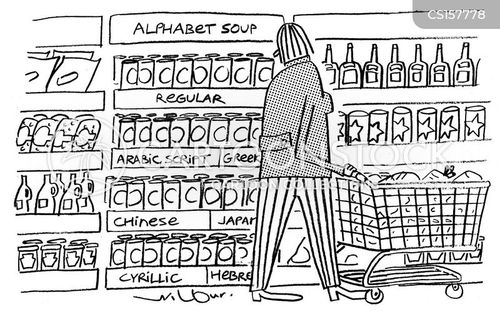 CS157778
ALPHABET SOUP
REGULAR
ARABIC SCRIPT GREEK
CHINESE JAPA
CYRILLIC HEBRE